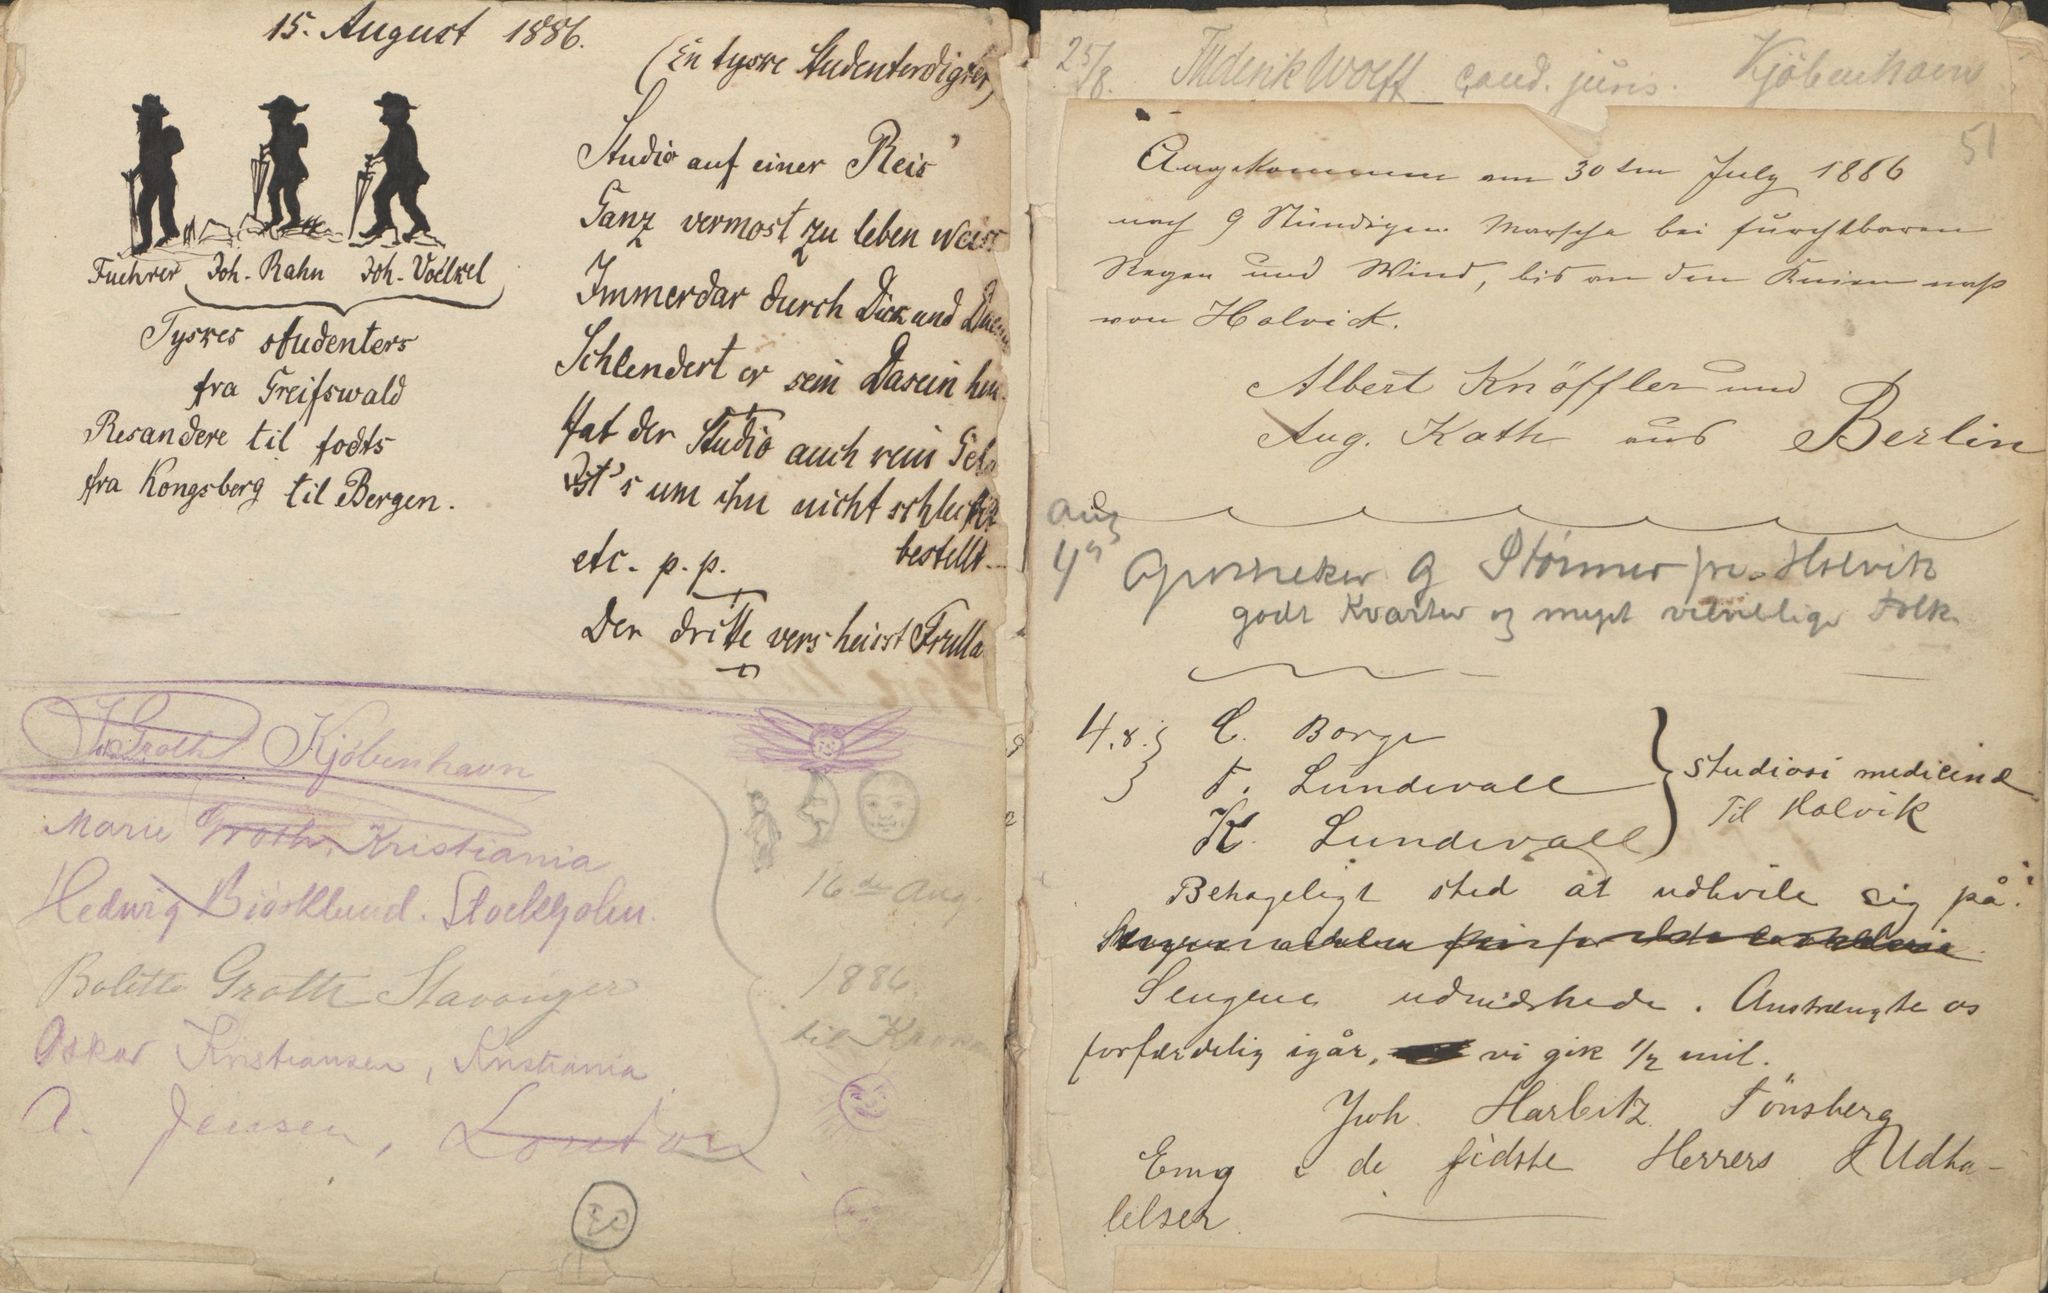 15. August 1886.
(En tyske Studenterdigter)
Fuehrer Joh. Rahn Joh. Voelkel
Tyskes studenters
fra Greifswald
Resandere til fodts
fra Kongsberg til Bergen.
Studio auf einer Reis'
Ganz vermost zu leben weiss
Immerdar durch Dick und Duenn
Schlendert er sein Dasein hin.
Hat der Studio auch kein Geld
Ist's um ihn nicht schlecht
bestellt.
etc. p. p.
Der dritte vers heisst Frulla
Groth Kjöbenhavn
Marie Groth, Kristiania
Hedwig Björklund. Stockholm.
Bolette Groth Stavanger
Oskar Kristiansen, Kristiania
A. Jensen, London
16 de Aug.
1886.
til
25/8. Frederik Wolff cand. juris. Kjöbenhavn
51
Angekommen am 30ten July 1886
nach 9 Stündigen Marsche bei furchtbaren
Regen und Wind, bis an den Knien naß
von Holvick.
Albert Knöffler und
Aug. Kath aus Berlin
Aug
4 Apotheker G Störmer fra Holvik
godt Kvarter og meget velvillige Folk.
4.8. C. Borge
F. Lundevall
K. Lundevall
studiosi medicinæ
Til Holvik
Behageligt sted at udhvile sig på.
Sengene udmærkede. Anstrængte os
forfærdelig igår, vi gik 1/2 mil.
Joh. Harbitz Tönsberg
Enig i de sidste Herrers Udta-
lelser.